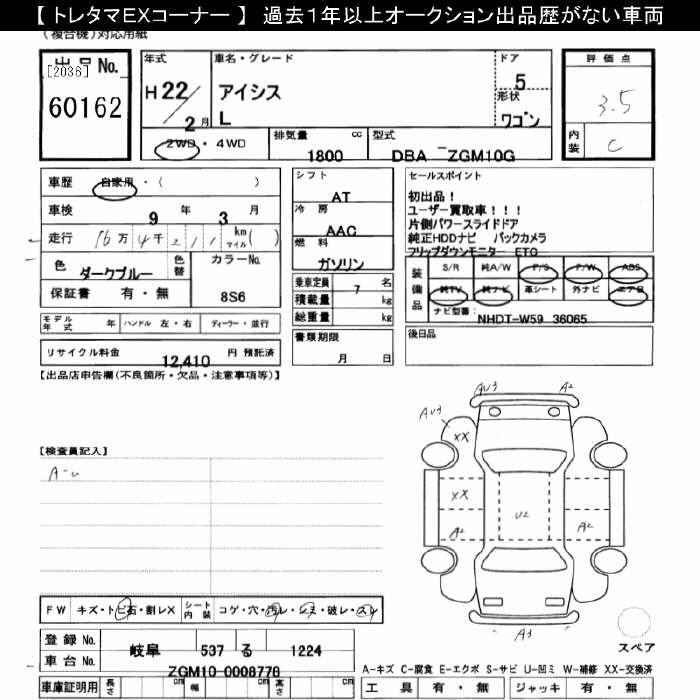 【トレタマEXコーナー】 過去1年以上オークション出品歴がない車両
(複合機)対応用紙
出品No.
[2036]
60162
年式
H 22/2月
車名・グレード
アイシス
L
ドア
5
形状
ワゴン
評価点
3.5
内装
C
2WD・4WD
排気量 cc
1800
型式
DBA ZGM10G
車歴 自家用・( )
車検 9年 3月
走行 16万4千211 km マイル( )
色 ダークブルー 色替
カラーNo.
8S6
保証書 有・無
シフト
AT
冷房
AAC
燃料
ガソリン
乗車定員 7 名
積載量 kg
総重量 kg
セールスポイント
初出品!
ユーザー買取車!!!
片側パワースライドドア
純正HDDナビ バックカメラ
フリップダウンモニター ETC
装備品
S/R 純A/W P/S P/W ABS
純TV 純ナビ 革シート 外ナビ エアB
ナビ型番: NHDT-W59 36065
モデル年式 年 ハンドル 左・右 ディーラー・並行
リサイクル料金 12,410 円 預託済
書類期限
月 日
後日品
【出品店申告欄(不良箇所・欠品・注意事項等)】
【検査員記入】
A-u
AU3
A2
AU3
XX
XX
A2
U2
A2
A3
スペア
FW キズ・トビ石・割レX
シート内装 コゲ・穴・汚レ・シミ・破レ・スレ
登録No. 岐阜 537 る 1224
車台No. ZGM10-0008778
車庫証明用 長さ cm 幅 cm 高さ cm
A-キズ C-腐食 E-エクボ S-サビ U-凹ミ W-補修 XX-交換済
工具 有・無 ジャッキ 有・無